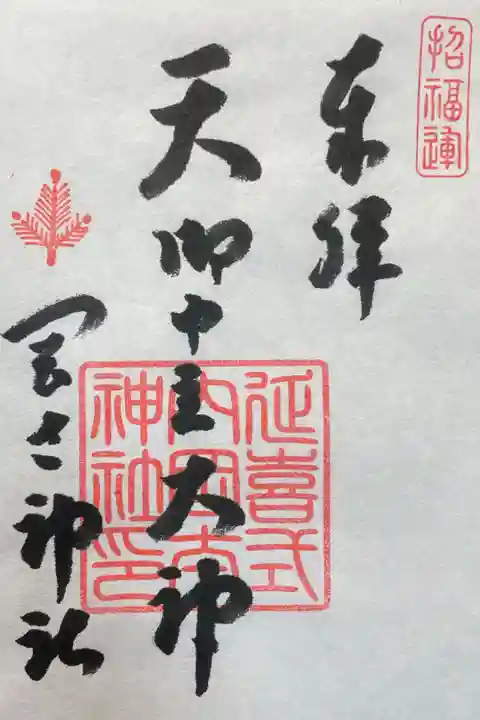 招福運
奉拝
天御中主大神
岡太神社
延喜式
内岡太
神社印